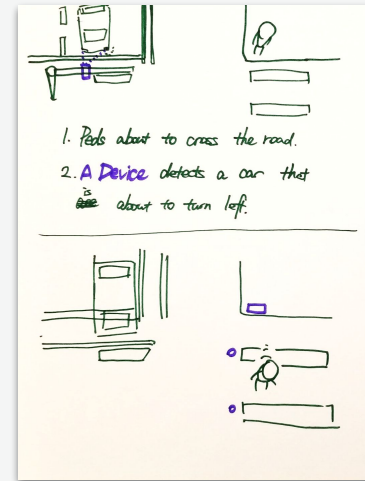 1. Peds about to cross the road.
2. A Device detects a car that
is
about to turn left.